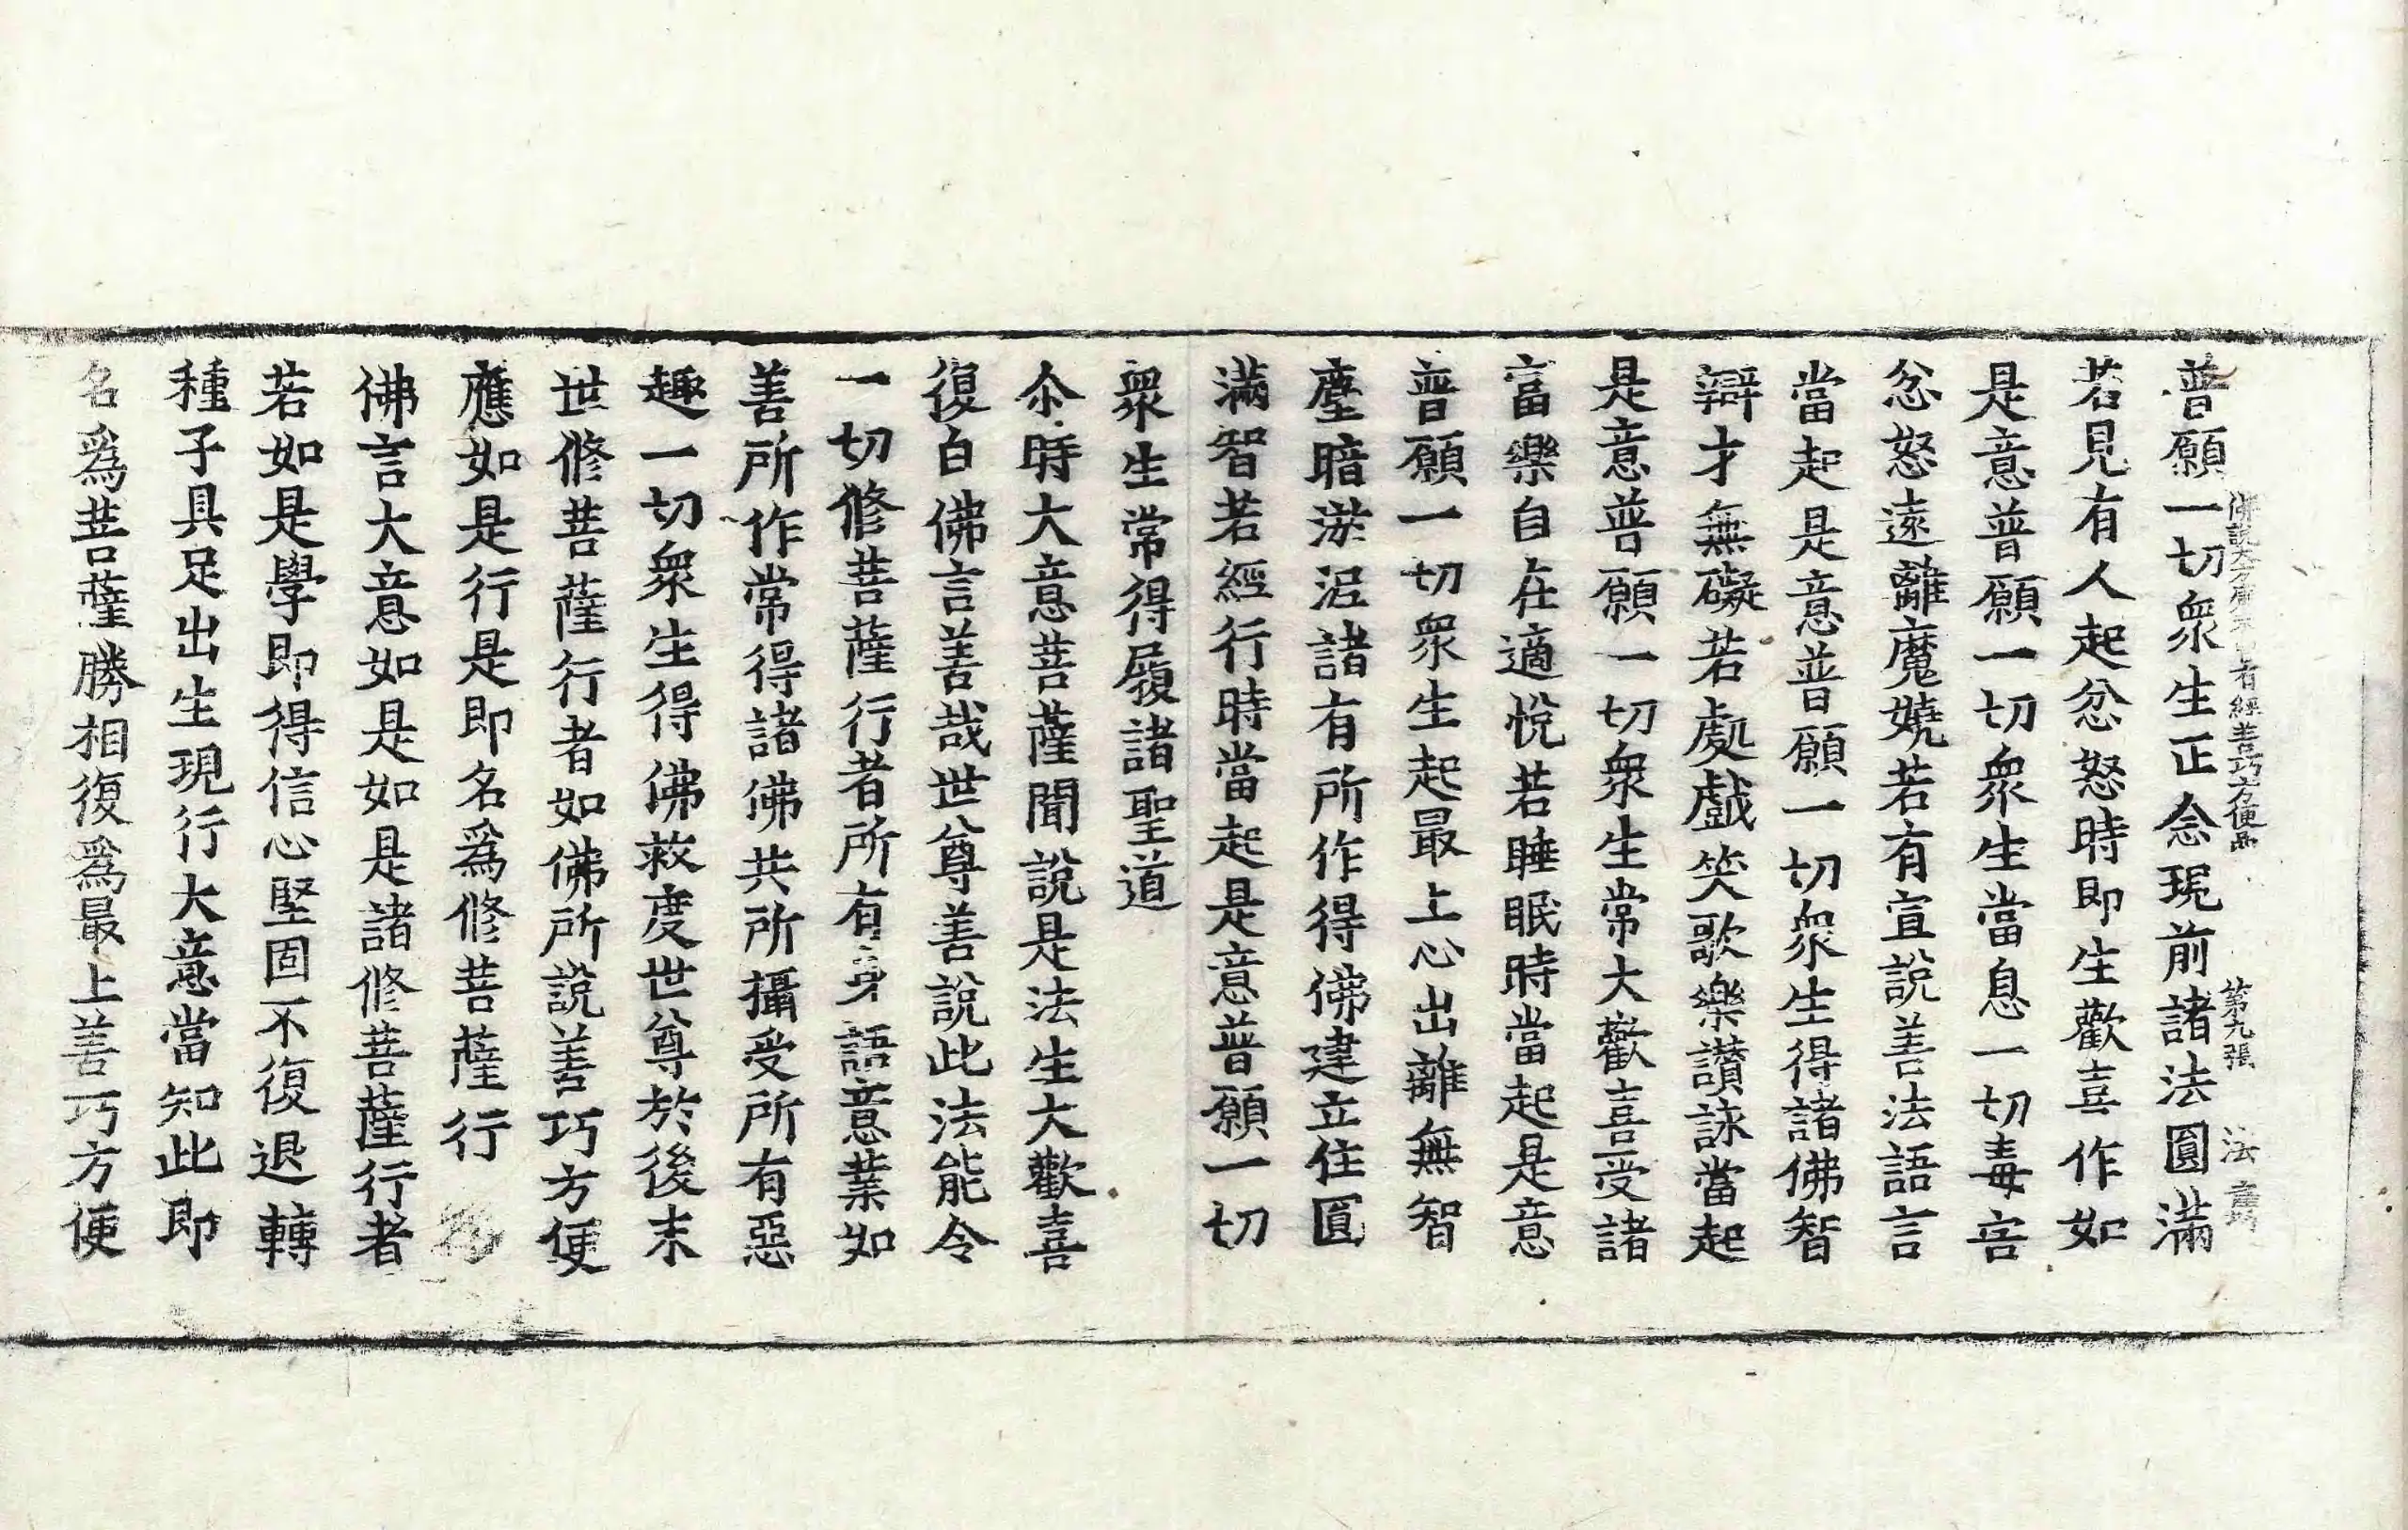 普願一切衆生正念現前諸法圓滿
佛說大方廣未 有經善巧方便品 第九張 法
若見有人起忿怒時即生歡喜作如
是意普願一切衆生當息一切毒害
忿怒遠離魔嬈若有宣說善法語言
當起是意普願一切衆生得諸佛智
辯才無礙若處戲笑歌樂讚詠當起
是意普願一切衆生常大歡喜受諸
富樂自在適悅若睡眠時當起是意
普願一切衆生起最上心出離無智
塵暗淤泥諸有所作得佛建立住圓
滿智若經行時當起是意普願一切
衆生常得履諸聖道
尒時大意菩薩聞說是法生大歡喜
復白佛言善哉世尊善說此法能令
一切修菩薩行者所有身語意業如
善所作常得諸佛共所攝受所有惡
趣一切衆生得佛救度世尊於後末
世修菩薩行者如佛所說善巧方便
應如是行是即名爲修菩薩行
佛言大意如是如是諸修菩薩行者
若如是學即得信心堅固不復退轉
種子具足出生現行大意當知此即
名爲菩薩勝相復爲最上善巧方便